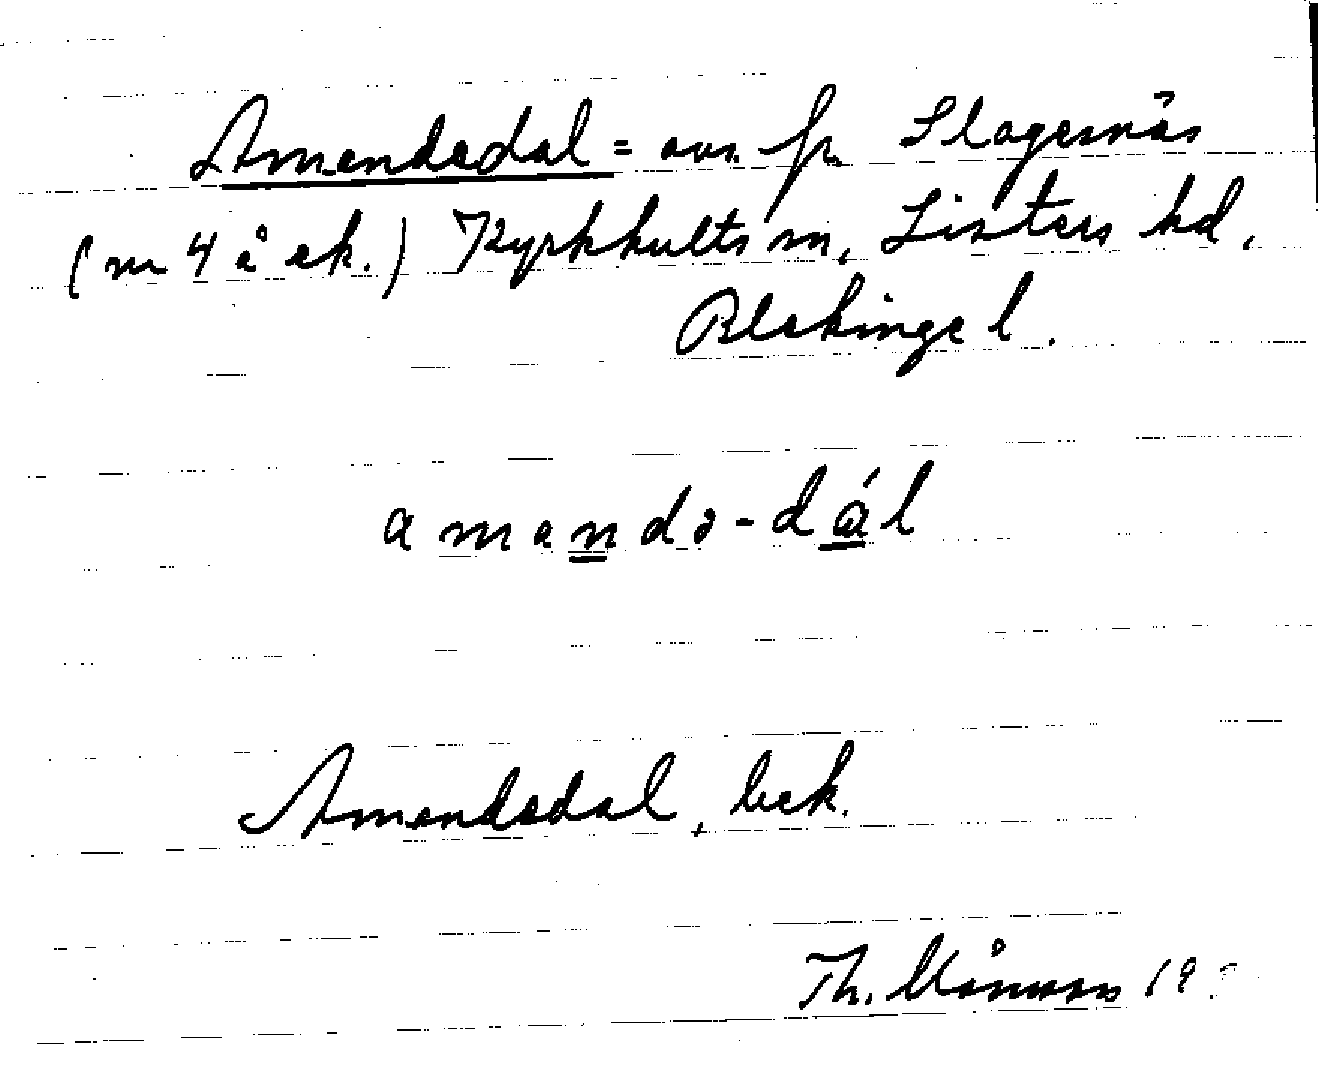 Amandadal = avs. fr. Slagesnäs
(nr 4 å ek.) Kyrkhults sn, Listers hd,
Blekinge l.
amandə-dál
Amandadal, bek.
Th. Månsson 19